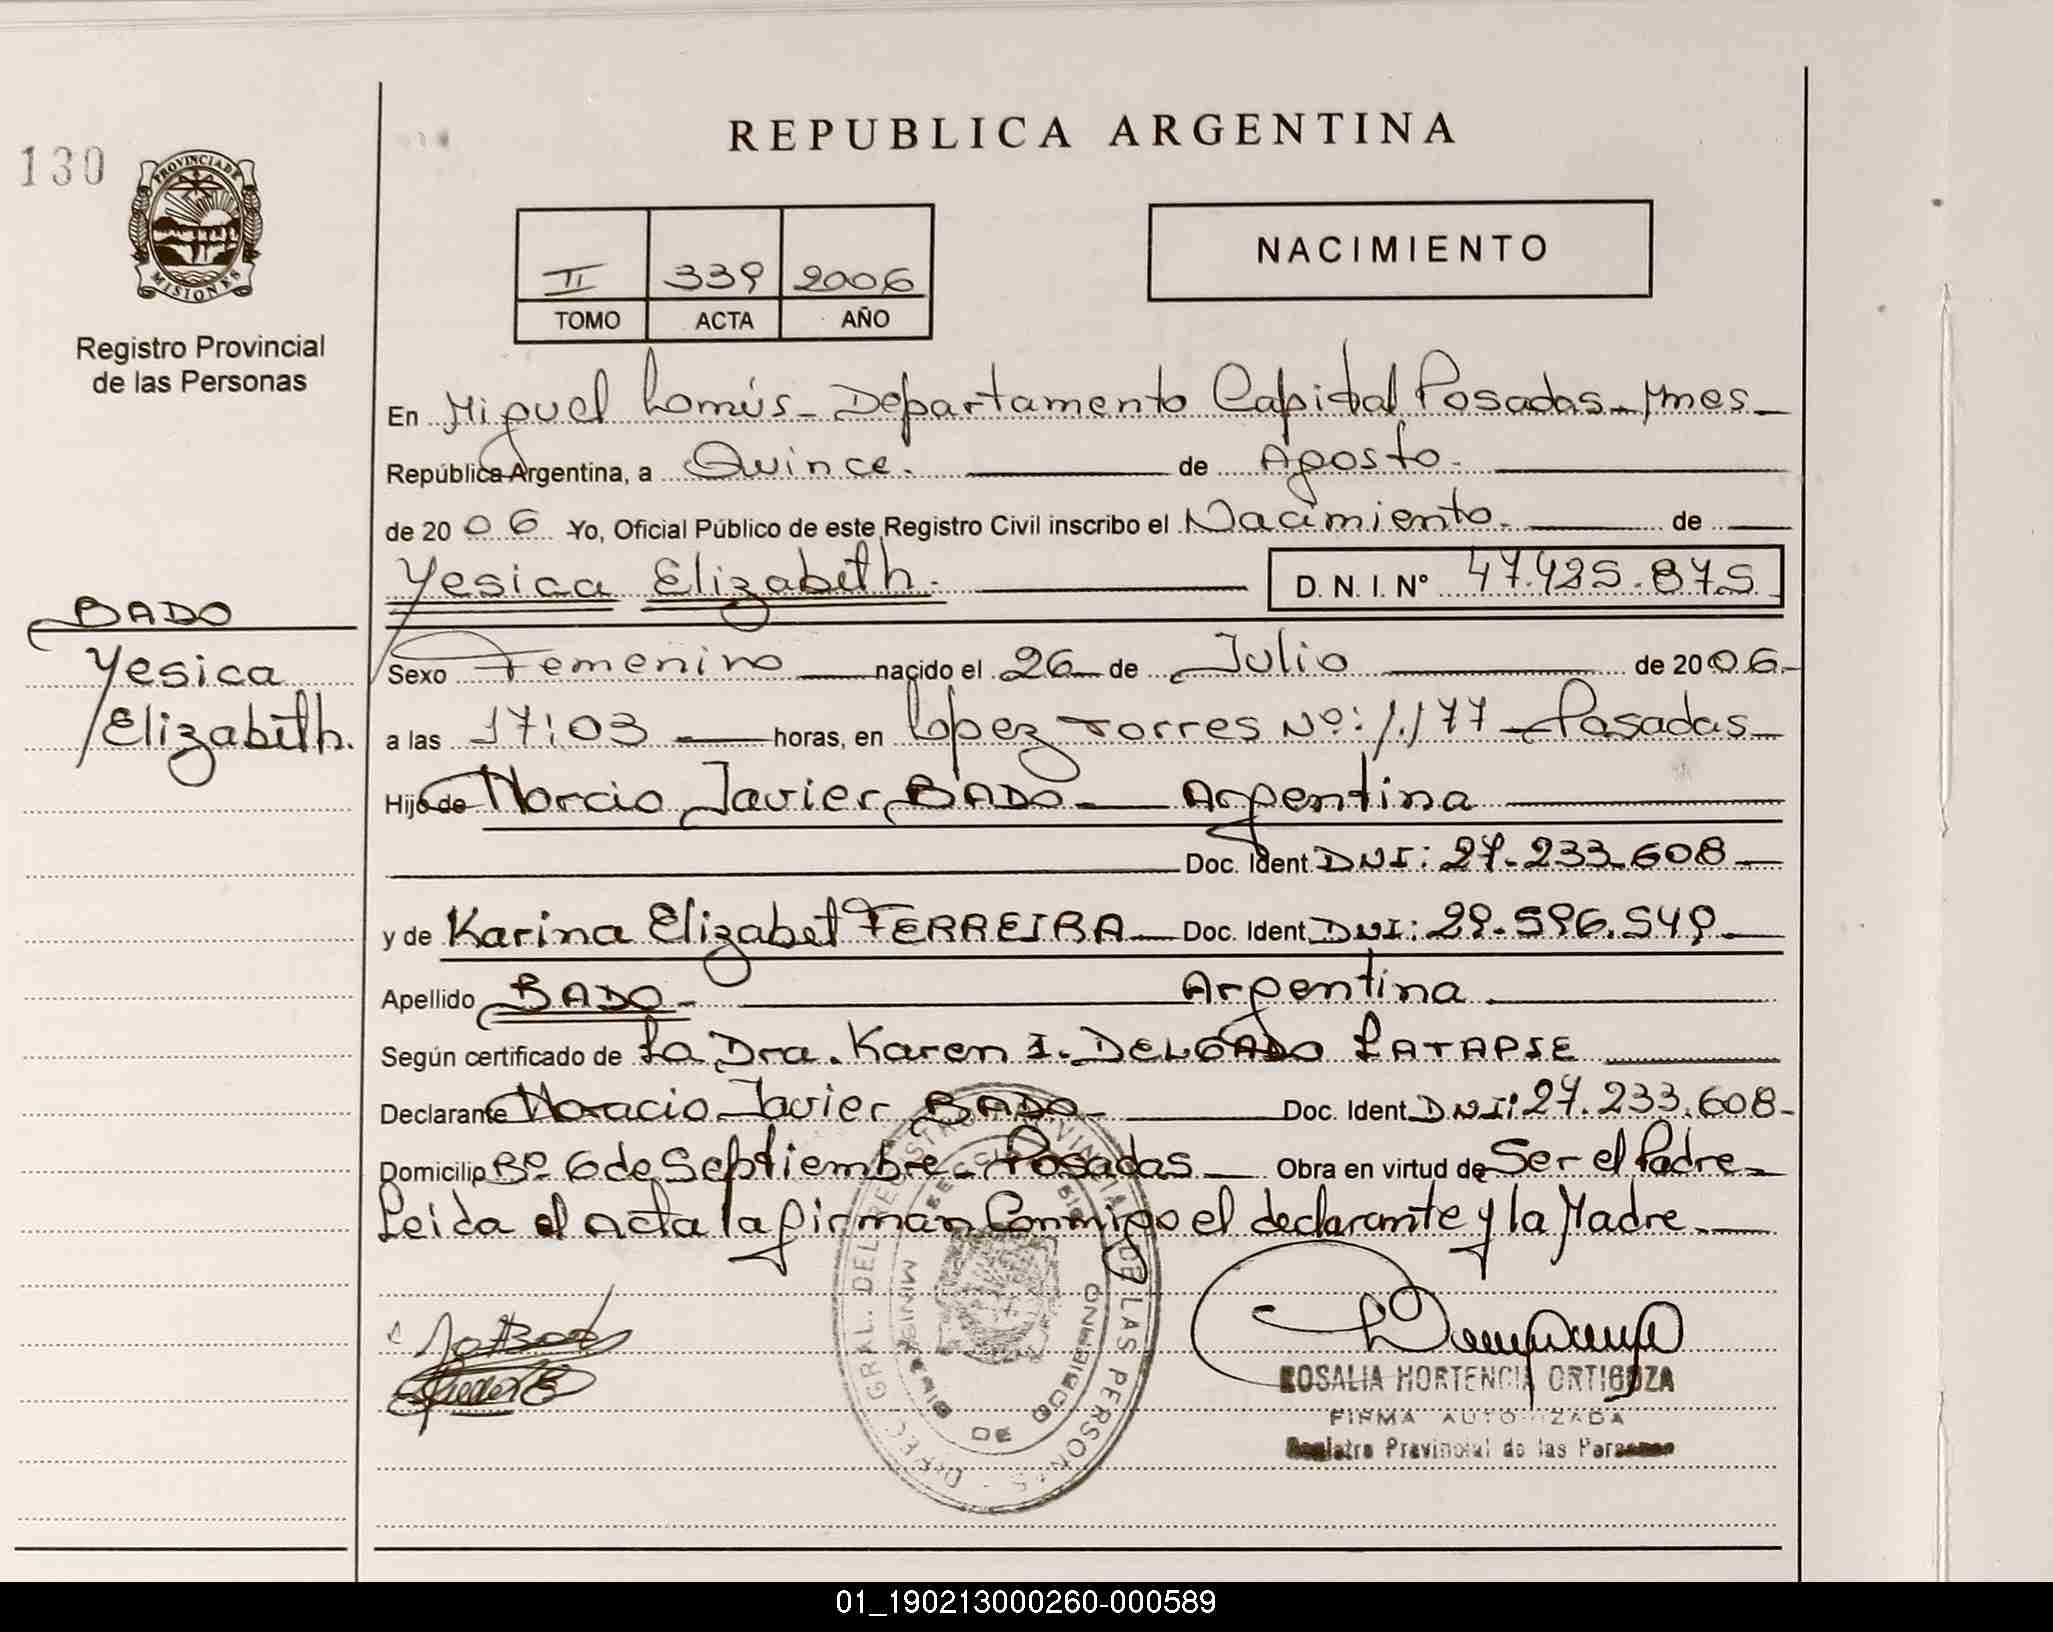 130
PROVINCIA DE
MISIONES
Registro Provincial
de las Personas
BADO
Yesica
Elizabeth.
REPUBLICA ARGENTINA
II 339 2006
TOMO ACTA AÑO
NACIMIENTO
En Miguel Lanús - Departamento Capital Posadas - Mnes -
República Argentina, a Quince. de Agosto.
de 2006 Yo, Oficial Público de este Registro Civil inscribo el Nacimiento. de
Yesica Elizabeth. D. N. I. Nº 47.425.875
Sexo Femenino nacido el 26 de Julio de 2006.
a las 17:03 horas, en Lopez Torres Nº: 1.177 - Posadas
Hijo de Horacio Javier BADO Argentina
Doc. Ident. DNI: 27.233.608
y de Karina Elizabet FERREIRA Doc. Ident. DNI: 29.596.549
Apellido BADO - Argentina
Según certificado de La Dra. Karen I. DELGADO
Declarante Horacio Javier BADO Doc. Ident. DNI: 27.233.608 -
Domicilio Bº 6 de Septiembre - Posadas Obra en virtud de Ser el Padre -
Leida el acta la firman Conmigo el declarante y la Madre.
DIREC. GRAL. DEL REGISTRO PROVINCIAL DE LAS PERSONAS
MINISTERIO DE GOBIERNO
ROSALIA HORTENCIA ORTIGOZA
FIRMA AUTORIZADA
Registro Provincial de las Personas
01_190213000260-000589